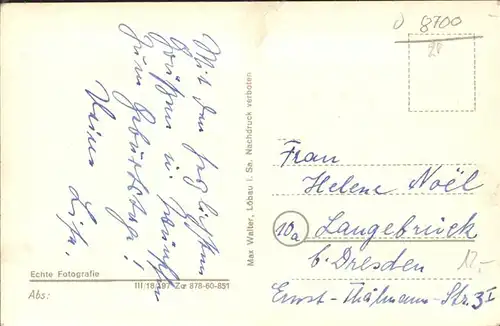 Mit den herzlichsten
Grüßen u. Wünschen
zum Geburtstag!
Deine Lisa.
Echte Fotografie
III/18/197 Zw 878-60-851
Abs:
Max Walter, Löbau i. Sa. Nachdruck verboten
8700
Frau
Helene Noël
10a Langebrück
b. Dresden
Ernst-Thälmann-Str. 3 I
12.-